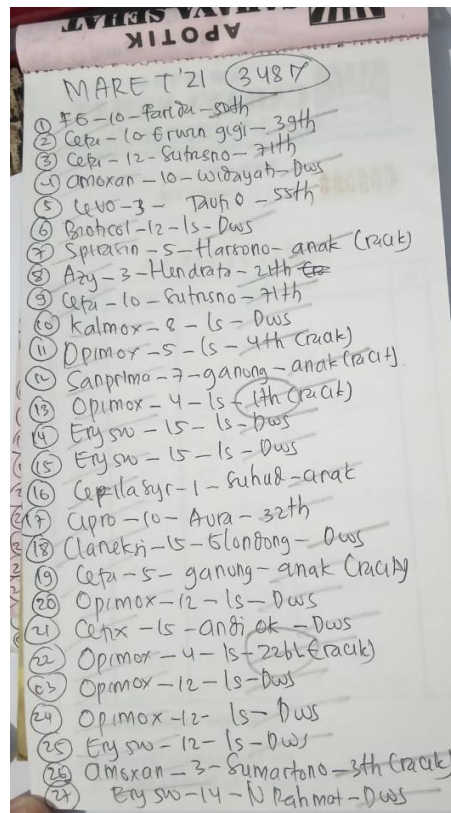 APOTIK
MARET '21 3487
① FG-10-Farida-50th
② Cefa-10-Erwin gigi-39th
③ Cefa-12-Sutrisno-71th
④ amoxan-10-widayah-Dws
⑤ Levo-3-Taufiq-55th
⑥ Biothicol-12-Is-Dws
⑦ Spirasin-5-Harsono-anak (racik)
⑧ Azy-3-Hendrata-21th
⑨ Cefa-10-Sutrisno-71th
⑩ Kalmox-8-Is-Dws
⑪ Opimox-5-Is-4th (racik)
⑫ Sanprima-7-ganong-anak (racik)
⑬ Opimox-4-Is-1th (racik)
⑭ Erysan-15-Is-Dws
⑮ Erysan-15-Is-Dws
⑯ Cefilasyr-1-Suhud-anak
⑰ Cipro-10-Aura-32th
⑱ Claneksi-15-Glondong-Dws
⑲ Cefa-5-ganong-anak (racik)
⑳ Opimox-12-Is-Dws
㉑ Cefix-15-andi ok-Dws
㉒ Opimox-4-Is-22bl (racik)
㉓ Opimox-12-Is-Dws
㉔ Opimox-12-Is-Dws
㉕ Erysan-12-Is-Dws
㉖ amoxan-3-Sumartono-3th (racik)
㉗ Erysan-14-N Rahmat-Dws